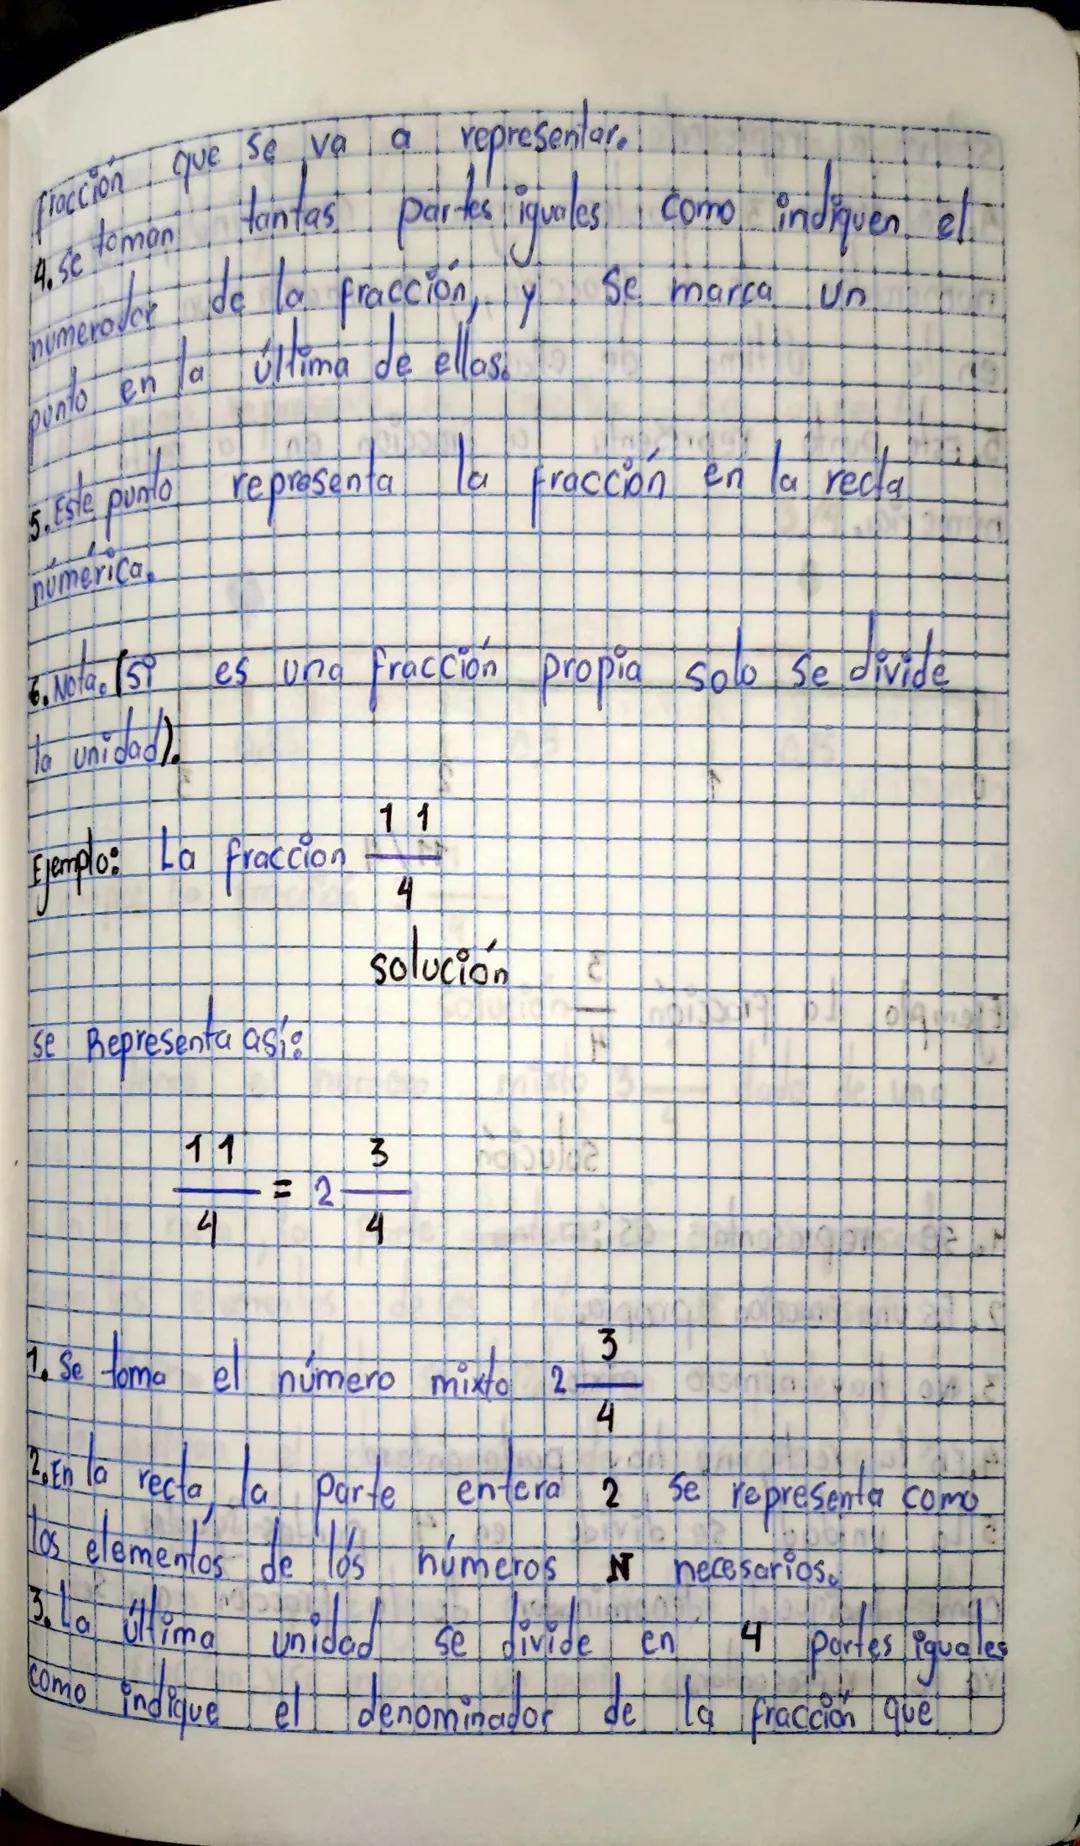 fracción que se va a representar.
4. se toman tantas partes iguales como indiquen el
numerador de la fracción, y se marca un
punto en la última de ellas.
5. Este punto representa la fracción en la recta
númérica.
6. Nota. (si es una fracción propia solo se divide
la unidad).
Ejemplo: La fraccion 11/4
solución
se Representa así:
11/4 = 2 3/4
1. Se toma el número mixto 2 3/4
2. En la recta, la parte entera 2 se representa como
los elementos de los números N necesarios.
3. La última unidad se divide en 4 partes iguales
como indique el denominador de la fracción que